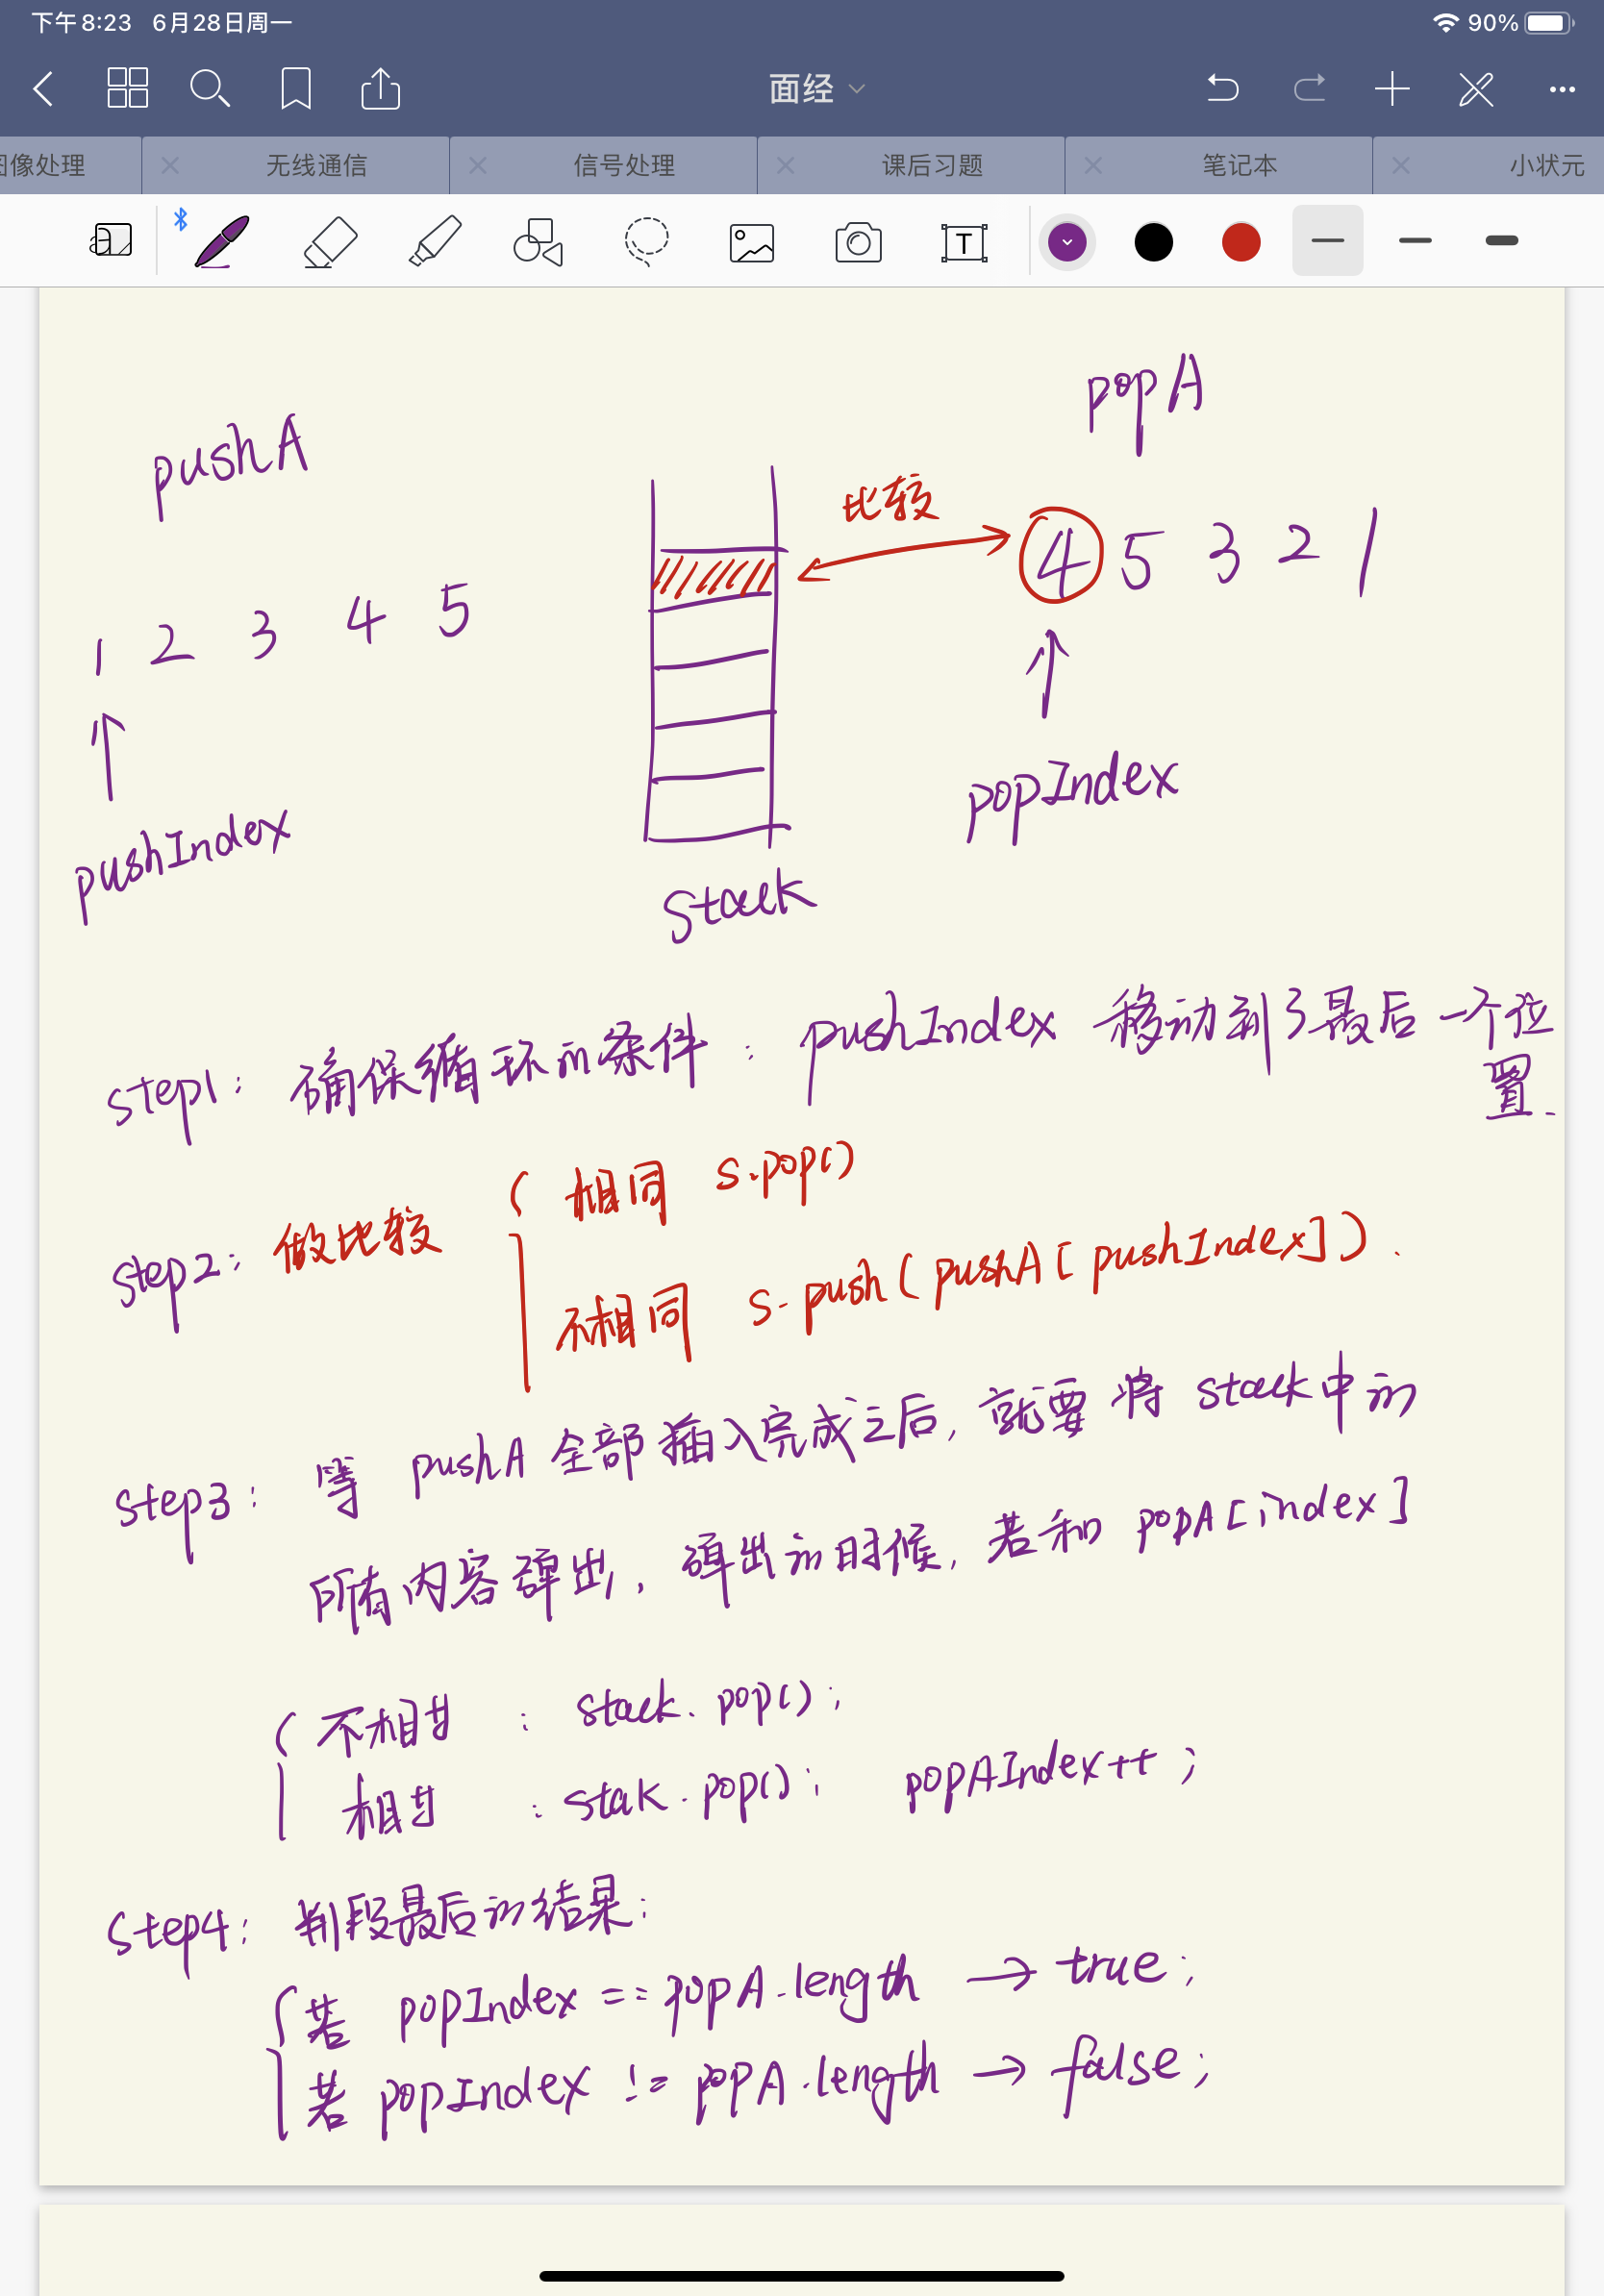 下午8:23 6月28日周一
90%
面经
图像处理
无线通信
信号处理
课后习题
笔记本
小状元
T
pushA
popA
比较
1 2 3 4 5
4 5 3 2 1
pushIndex
popIndex
Stack
step1: 确保循环的条件: pushIndex 移动到了最后一个位
置.
step2: 做比较
相同 s.pop()
不相同 s.push(pushA[pushIndex]).
step3: 等 pushA 全部插入完成之后, 就要将 stack中的
所有内容弹出, 弹出的时候, 若和 popA[index]
不相等 : stack.pop();
相等 : stak.pop(); popAIndex++;
Step4: 判段最后的结果:
若 popIndex == popA.length → true;
若 popIndex != popA.length → false;